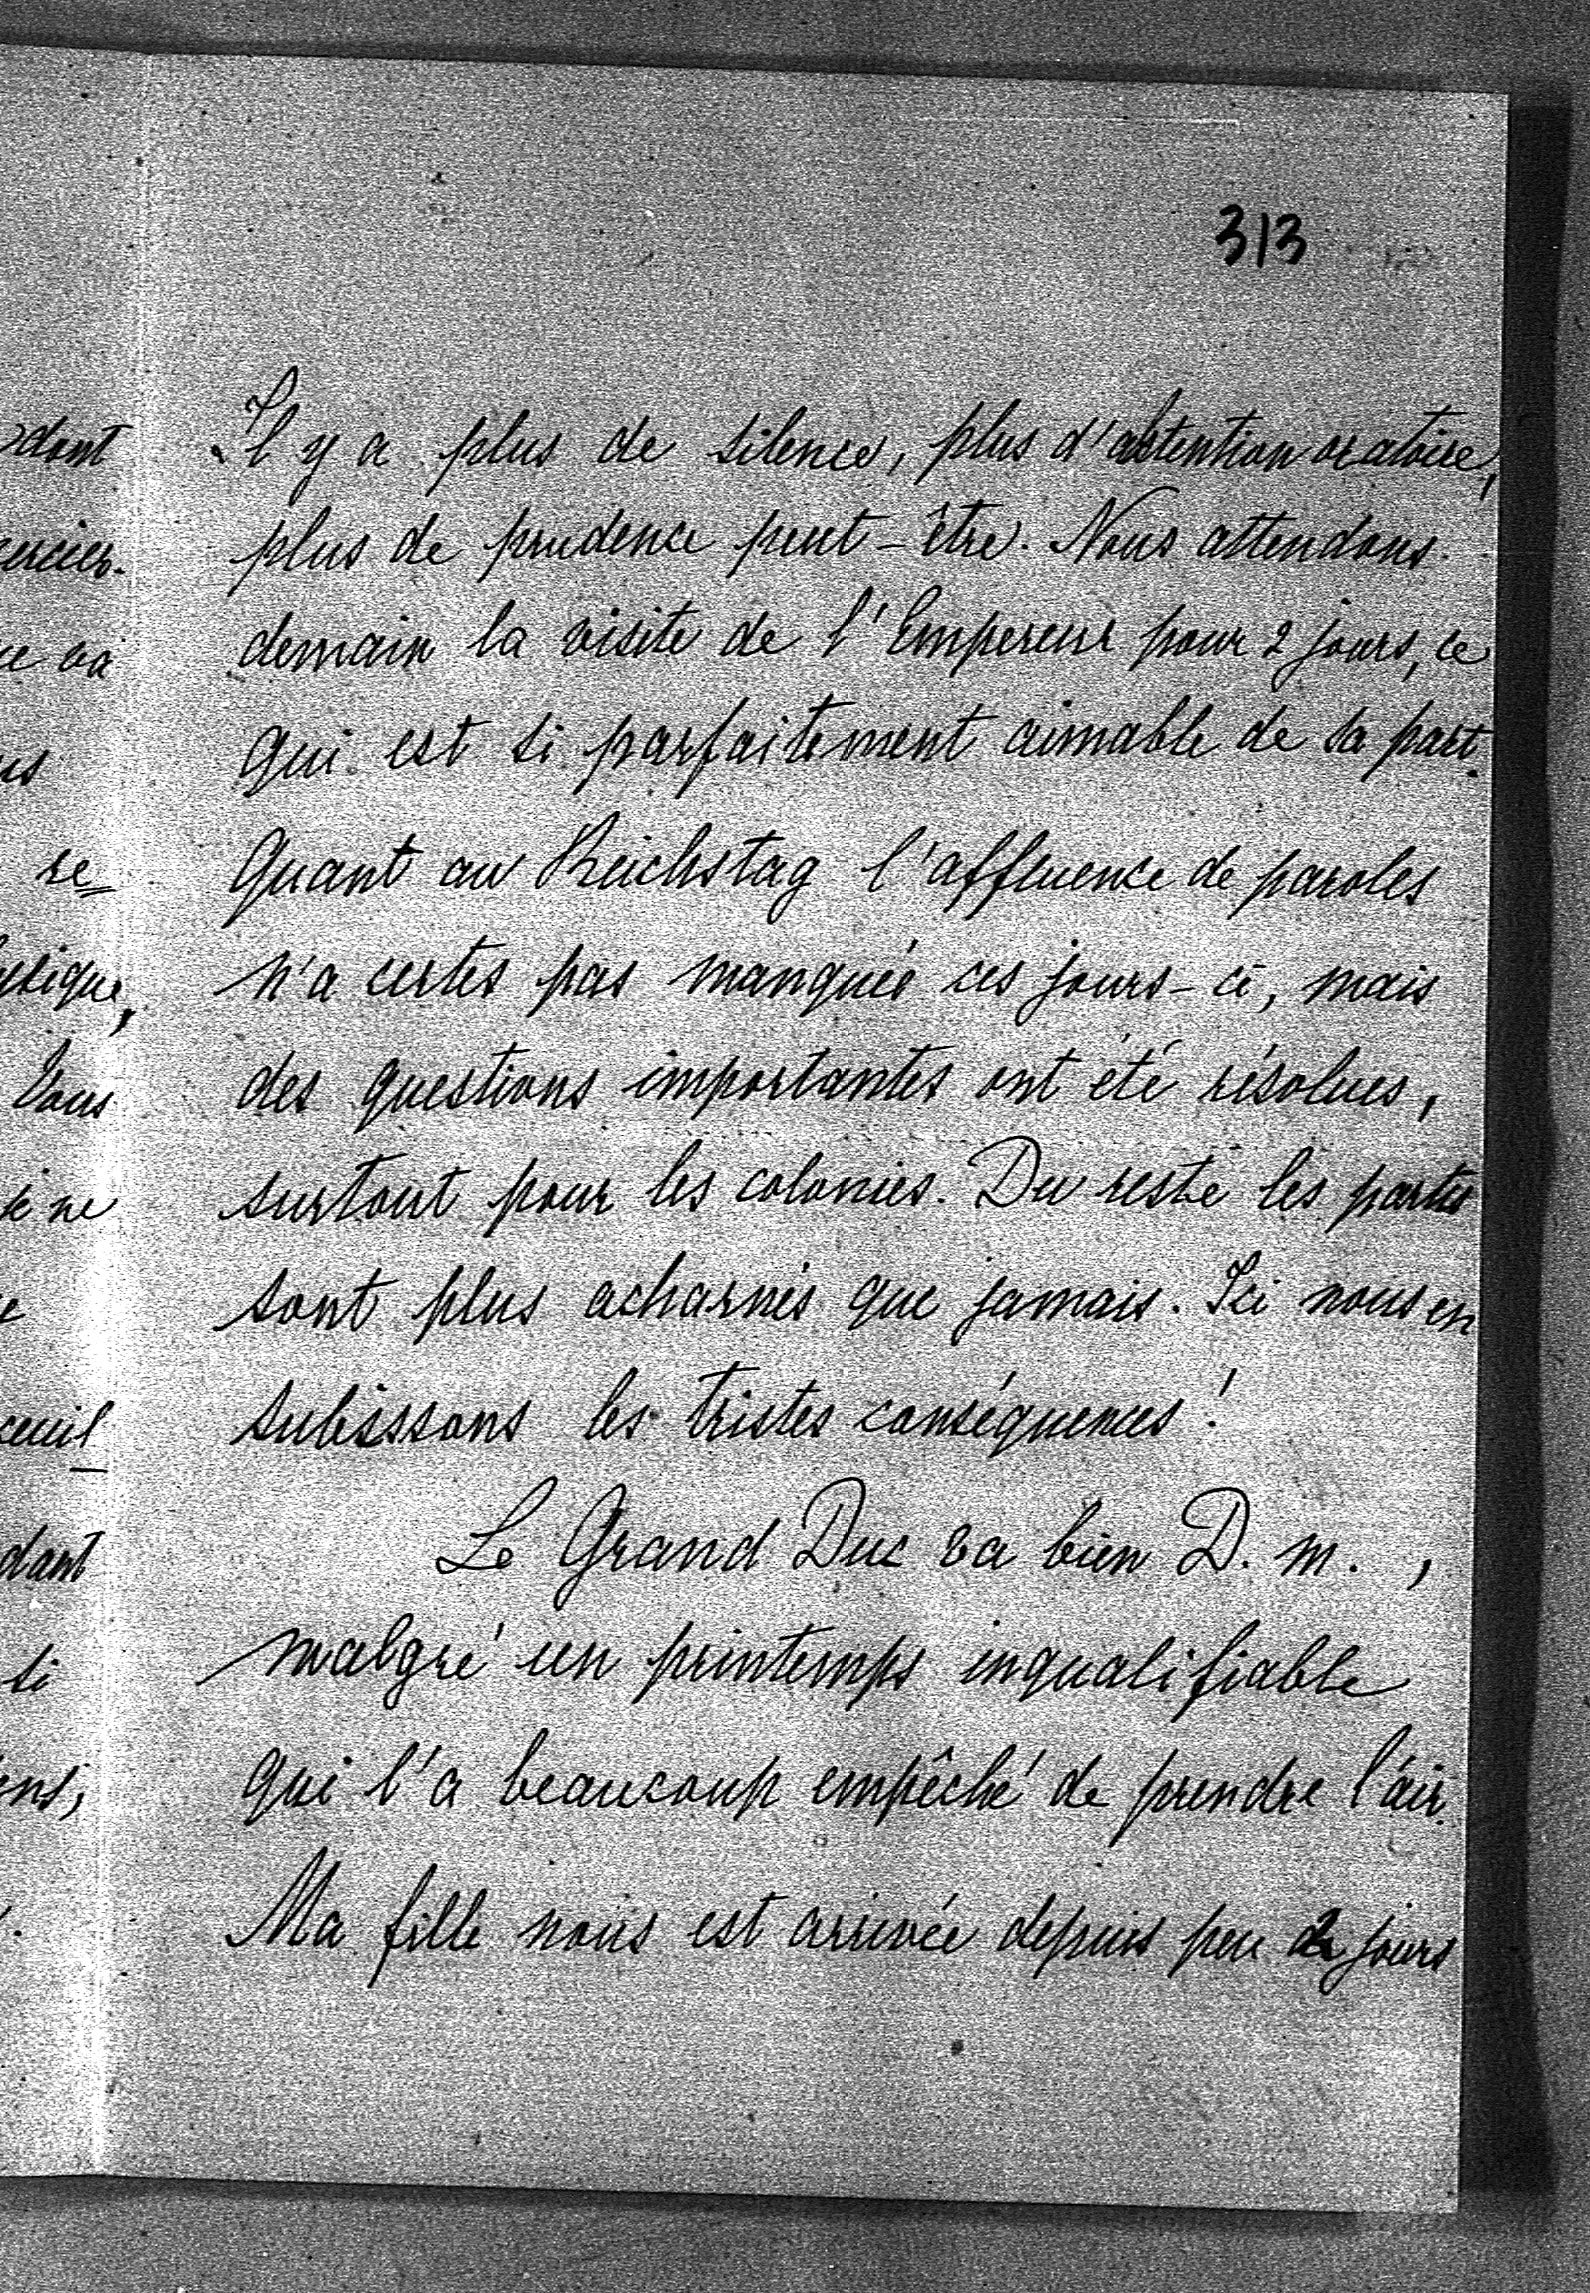 313
Il y a plus de silence, plus d'abtention oratoire,
plus de prudence peut-être. Nous attendons
demain la visite de l'Empereur pour 2 jours, ce
qui est si parfaitement aimable de sa part.
Quant au Reichstag l'affluence de paroles
n'a certes pas manquée ces jours-ci, mais
des questions importantes ont été résolues,
surtout pour les colonies. Du reste les partis
sont plus acharnés que jamais. Ici nous en
subissons les tristes conséquences!
Le Grand Duc va bien D. m.,
malgré un printemps inqualifiable
qui l'a beaucoup empêché de prendre l'air.
Ma fille nous est arrivée depuis peu de jours
dont
va
re=
Vous
ne
dant
si